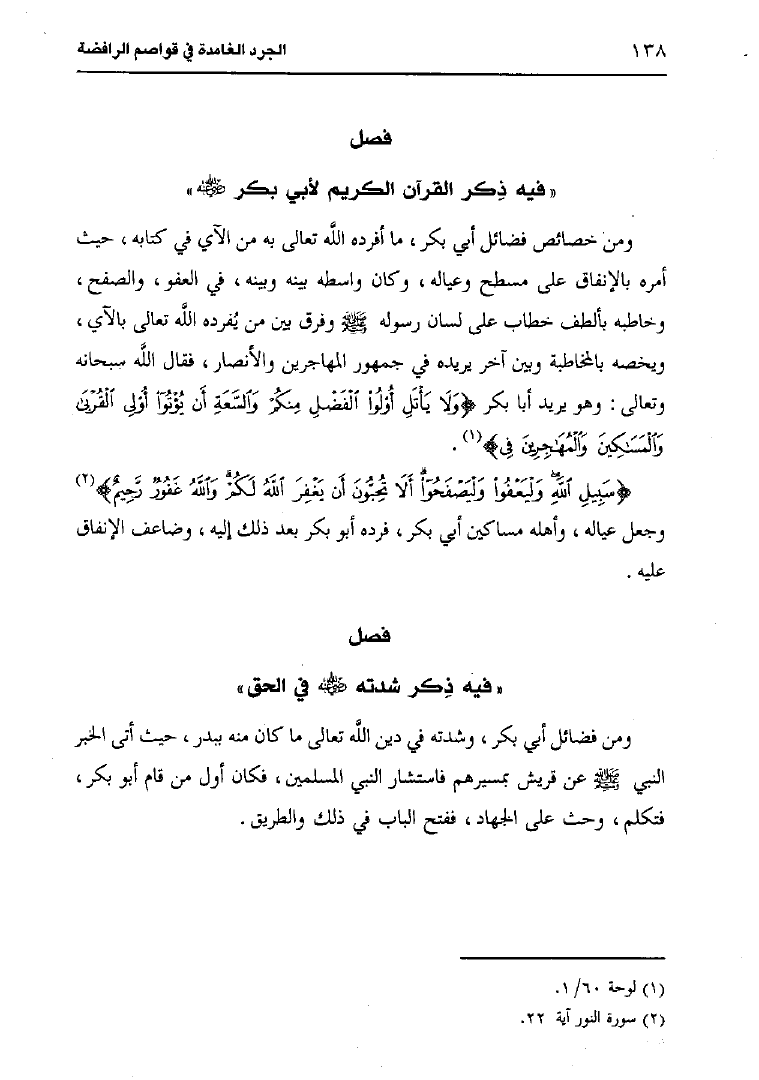 ١٣٨
الجرد الغامدة في قواصم الرافضة
فصل
«فيه ذِكر القرآن الكريم لأبي بكر رضي الله عنه»
ومن خصائص فضائل أبي بكر ، ما أفرده اللَّه تعالى به من الآي في كتابه ، حيث
أمره بالإنفاق على مسطح وعياله ، وكان واسطه بينه وبينه ، في العفو ، والصفح ،
وخاطبه بألطف خطاب على لسان رسوله ﷺ وفرق بين من يُفرده اللَّه تعالى بالآي ،
ويخصه بالمخاطبة وبين آخر يريده في جمهور المهاجرين والأنصار ، فقال اللَّه سبحانه
وتعالى : وهو يريد أبا بكر ﴿وَلَا يَأْتَلِ أُو۟لُوا۟ ٱلْفَضْلِ مِنكُمْ وَٱلسَّعَةِ أَن يُؤْتُوٓا۟ أُو۟لِى ٱلْقُرْبَىٰ
وَٱلْمَسَٰكِينَ وَٱلْمُهَٰجِرِينَ فِى﴾(١) .
﴿سَبِيلِ ٱللَّهِ ۖ وَلْيَعْفُوا۟ وَلْيَصْفَحُوٓا۟ ۗ أَلَا تُحِبُّونَ أَن يَغْفِرَ ٱللَّهُ لَكُمْ ۗ وَٱللَّهُ غَفُورٌ رَّحِيمٌ﴾(٢)
وجعل عياله ، وأهله مساكين أبي بكر ، فرده أبو بكر بعد ذلك إليه ، وضاعف الإنفاق
عليه .
فصل
«فيه ذِكر شدته رضي الله عنه في الحق»
ومن فضائل أبي بكر ، وشدته في دين اللَّه تعالى ما كان منه ببدر ، حيث أتى الخبر
النبي ﷺ عن قريش بمسيرهم فاستشار النبي المسلمين ، فكان أول من قام أبو بكر ،
فتكلم ، وحث على الجهاد ، ففتح الباب في ذلك والطريق .
(١) لوحة ١/٦٠.
(٢) سورة النور آية ٢٢.